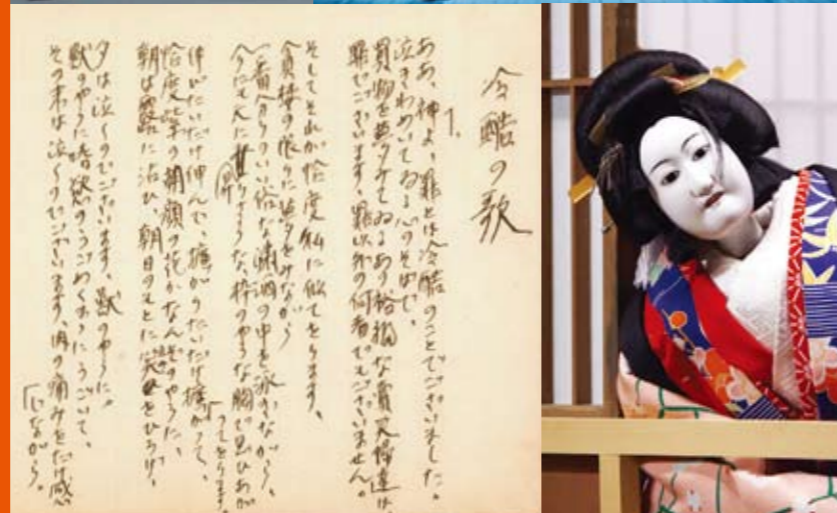 冷酷の歌
1.
あゝ、神よ、罪とは冷酷のことでございました。
泣きわめいてゐる心のそばで、
買物を夢みてゐるあの裕福な賣笑婦達は、
罪でございます、罪以外の何者でもございません。
そしてそれが恰度私に似てをります、
貪婪の限りに夢をみながら
一番分りのいい俗な瀟洒の中を泳ぎながら、
今にも天に昇りさうな、枠のやうな胸で思ひあが
つてをります。
伸びたいだけ伸んで、擴がりたいだけ擴がつて、
恰度紫の朝顔の花かなんぞのやうに、
朝は露に沾ひ、朝日のもとに笑をひろげ、
夕は泣くのでございます、獣のやうに。
獣のやうに嗜慾のうごめくまゝにうごいて、
その末は泣くのでございます、肉の痛みをだけ感
じながら。